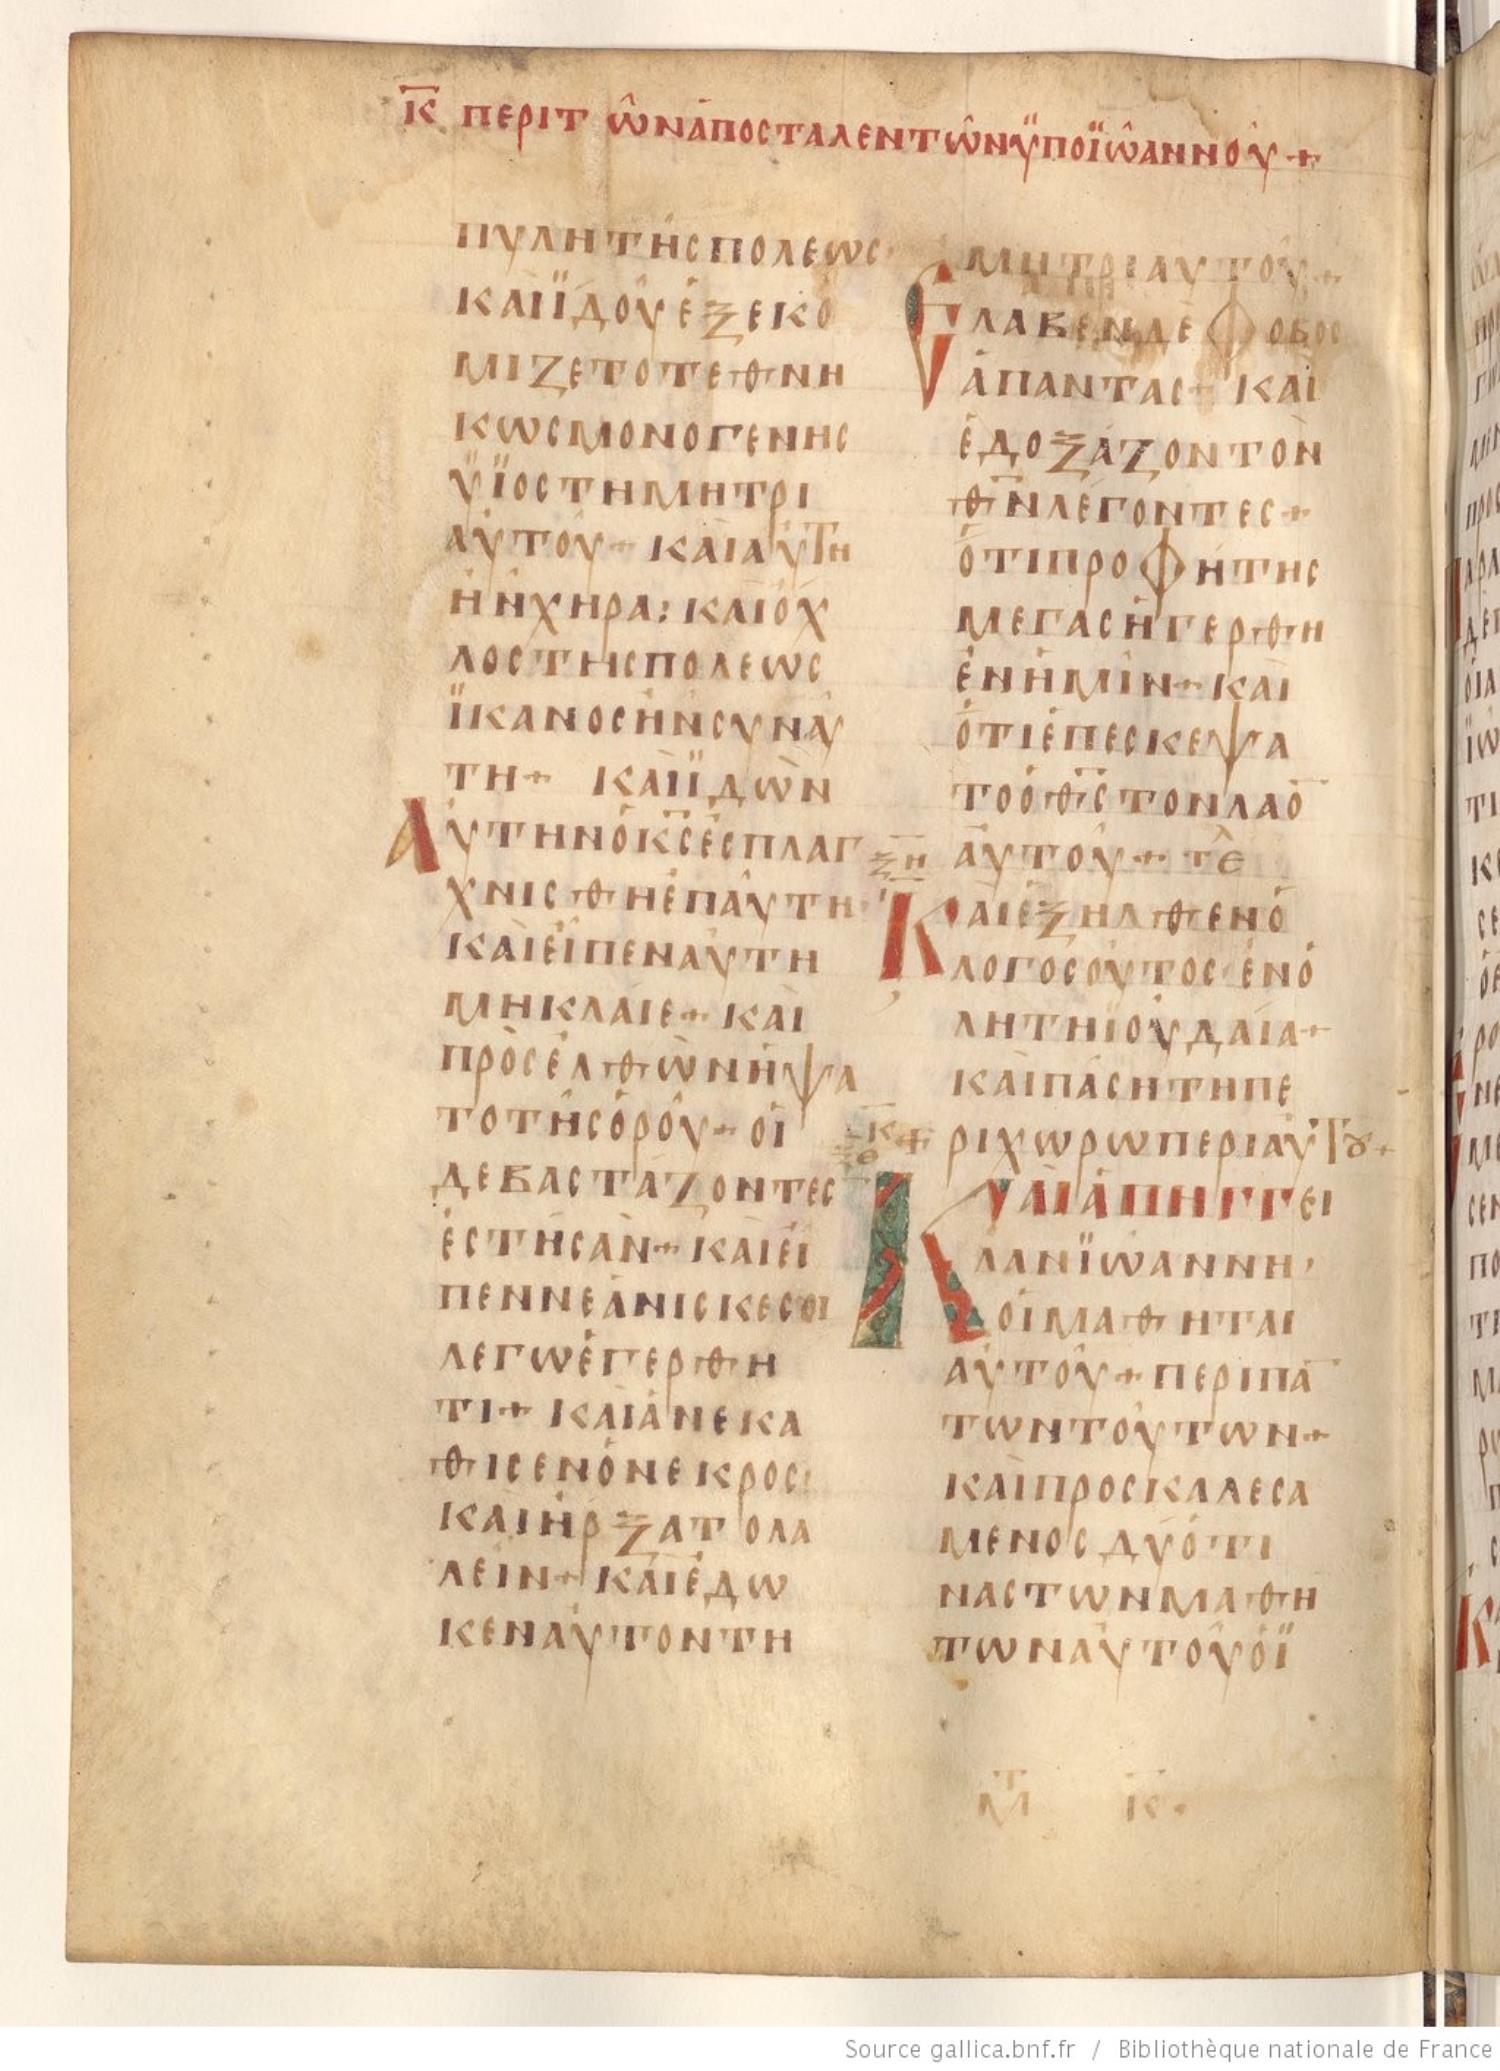 Κ̅ ΠΕΡΙ Τῶ̂Ν ἈΠΟΣΤΑΛΕΝΤῶ̂Ν ΫΠΟ ΪῶΑΝΝΟΥ +
ΠΥΛΗ ΤΗϹ ΠΟΛΕωϹ
ΚΑΙ ΪΔΟΥ ΕΞΕΚΟ
ΜΙΖΕΤΟ ΤΕΘΝΗ
ΚωϹ ΜΟΝΟΓΕΝΗϹ
ΫΪΟϹ ΤΗ ΜΗΤΡΙ
ΑΥΤΟΥ + ΚΑΙ ΑΥΤΗ
ΗΝ ΧΗΡΑ : ΚΑΙ ΟΧ
ΛΟϹ ΤΗϹ ΠΟΛΕωϹ
ΪΚΑΝΟϹ ΗΝ ϹΥΝ ΑΥ
ΤΗ + ΚΑΙ ΪΔωΝ
ΑΥΤΗΝ Ο Κ̅Ϲ̅ ΕϹΠΛΑΓ
ΧΝΙϹΘΗ ΕΠ ΑΥΤΗ
ΚΑΙ ΕΙΠΕΝ ΑΥΤΗ
ΜΗ ΚΛΑΙΕ + ΚΑΙ
ΠΡΟϹΕΛΘωΝ ΗΨΑ
ΤΟ ΤΗϹ ΟΡΟΥ + ΟΙ
ΔΕ ΒΑϹΤΑΖΟΝΤΕϹ
ΕϹΤΗϹΑΝ + ΚΑΙ ΕΙ
ΠΕΝ ΝΕΑΝΙϹΚΕ ϹΟΙ
ΛΕΓω ΕΓΕΡΘΗ
ΤΙ + ΚΑΙ ΑΝΕΚΑ
ΘΙϹΕΝ Ο ΝΕΚΡΟϹ
ΚΑΙ ΗΡΞΑΤΟ ΛΑ
ΛΕΙΝ + ΚΑΙ ΕΔω
ΚΕΝ ΑΥΤΟΝ ΤΗ
ΜΗΤΡΙ ΑΥΤΟΥ +
ΕΛΑΒΕΝ ΔΕ ΦΟΒΟϹ
ΑΠΑΝΤΑϹ + ΚΑΙ
ΕΔΟΞΑΖΟΝ ΤΟΝ
Θ̅Ν̅ ΛΕΓΟΝΤΕϹ +
ΟΤΙ ΠΡΟΦΗΤΗϹ
ΜΕΓΑϹ ΗΓΕΡΘΗ
ΕΝ ΗΜΙΝ + ΚΑΙ
ΟΤΙ ΕΠΕϹΚΕΨΑ
ΤΟ Ο Θ̅Ϲ̅ ΤΟΝ ΛΑΟ̅
Ξ̅Η̅ ΑΥΤΟΥ + ΤΕ
ΚΑΙ ΕΞΗΛΘΕΝ Ο
ΛΟΓΟϹ ΟΥΤΟϹ ΕΝ Ο
ΛΗ ΤΗ ΙΟΥΔΑΙΑ +
ΚΑΙ ΠΑϹΗ ΤΗ ΠΕ
Κ̅ ΡΙΧωΡω ΠΕΡΙ ΑΥΤȢ +
Ξ̅Θ̅
ΚΑΙ ΑΠΗΓΓΕΙ
ΛΑΝ ΪωΑΝΝΗ
ΟΙ ΜΑΘΗΤΑΙ
ΑΥΤΟΥ + ΠΕΡΙ ΠΑ̅
ΤωΝ ΤΟΥΤωΝ +
ΚΑΙ ΠΡΟϹΚΑΛΕϹΑ
ΜΕΝΟϹ ΔΥΟ ΤΙ
ΝΑϹ ΤωΝ ΜΑΘΗ
ΤωΝ ΑΥΤΟΥ Ο Ϊ
Source gallica.bnf.fr / Bibliothèque nationale de France